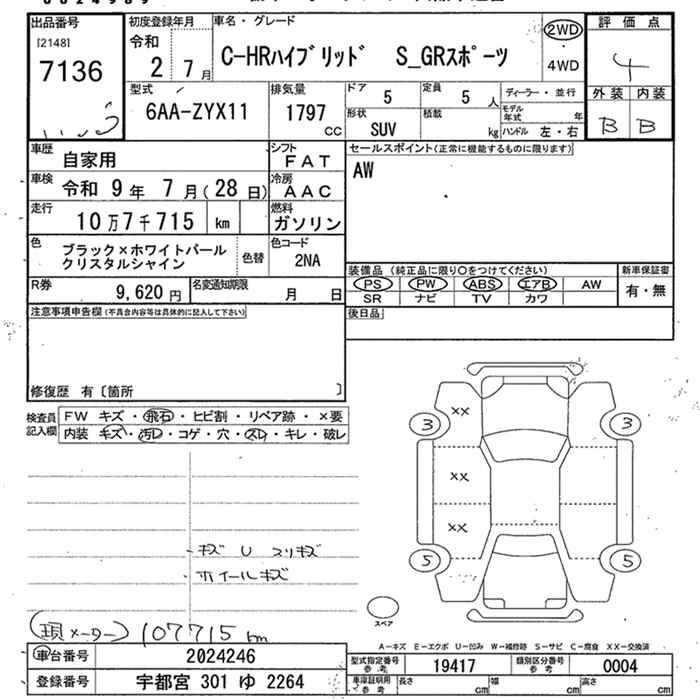 0024989
出品番号
[2148]
7136
初度登録年月
令和
2 7月
車名・グレード
C-HRハイブリッド S_GRスポーツ
2WD
4WD
評価点
4
外装 内装
B B
型式
6AA-ZYX11
排気量
1797
cc
ドア
5
定員
5人
形状
SUV
積載
kg
ディーラー・並行
モデル年式 年
ハンドル 左・右
車歴
自家用
シフト
FAT
車検
令和 9年 7月(28日)
冷房
AAC
走行
10万7千715 km
燃料
ガソリン
色
ブラック×ホワイトパール
クリスタルシャイン
色替
色コード
2NA
R券
9,620円
名変通知期限
月 日
セールスポイント(正常に機能するものに限ります)
AW
装備品(純正品に限り○をつけてください)
PS PW ABS エアB AW
SR ナビ TV カワ
新車保証書
有・無
後日品
注意事項申告欄(不具合内容等は具体的に記入して下さい)
修復歴 有〔箇所 〕
検査員記入欄
FW キズ・飛石・ヒビ割・リペア跡・×要
内装 キズ・汚レ・コゲ・穴・スレ・キレ・破レ
・キズ U スリキズ
・ホイールキズ
××
××
××
3
3
5
5
スペア
(現メーター) 107715 km
A-キズ E-エクボ U-凹み W-補修跡 S-サビ C-腐食 XX-交換済
車台番号
2024246
登録番号
宇都宮 301 ゆ 2264
型式指定番号
参考
19417
類別区分番号
参考
0004
車庫証明用
参考
長さ cm
幅 cm
高さ cm